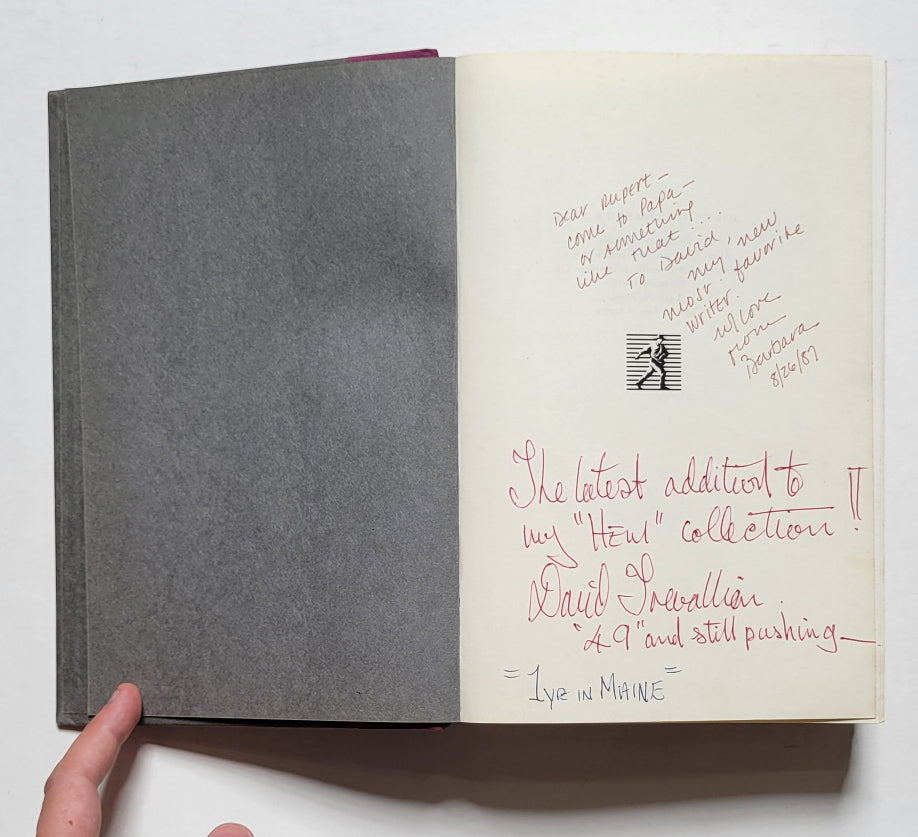 Dear Rupert –
come to Papa –
or something
like that ...
To David,
my new
most favorite
writer.
w/love
from
Barbara
8/26/87
The latest addition to
my "HEM" collection !!
David Trevallion.
"49" and still pushing —
= 1 YR IN MAINE =